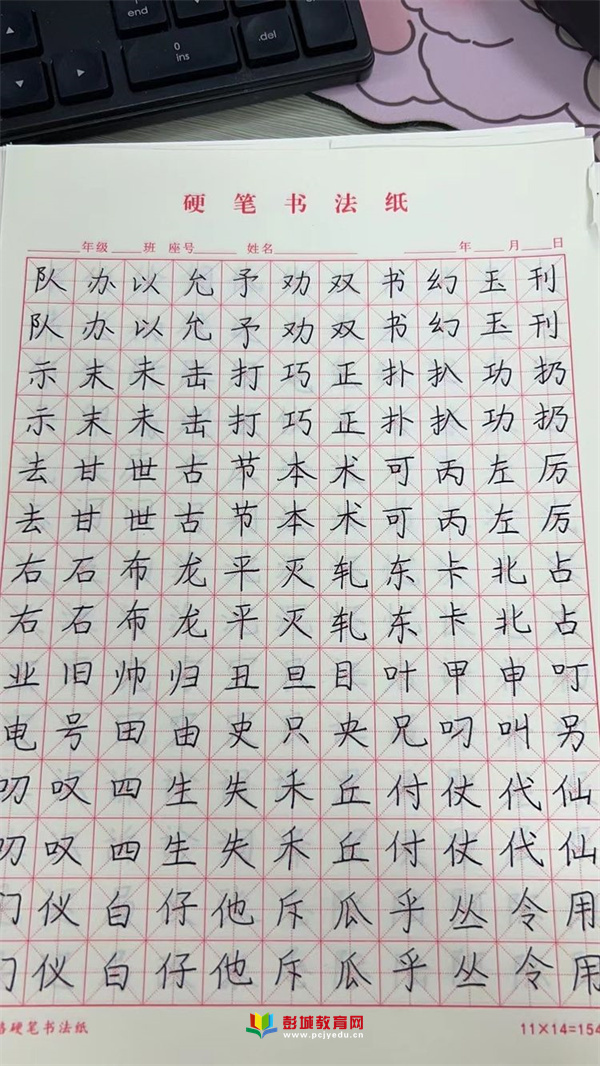 end
0
ins
.del
硬笔书法纸
年级 班 座号 姓名 年 月 日
队办以允予劝双书幻玉刊
队办以允予劝双书幻玉刊
示末未击打巧正扑扒功扔
示末未击打巧正扑扒功扔
去甘世古节本术可丙左厉
去甘世古节本术可丙左厉
右石布龙平灭轧东卡北占
右石布龙平灭轧东卡北占
业旧帅归丑旦目叶甲申叮
电号田由史只央兄叼叫另
叨叹四生失禾丘付仗代仙
叨叹四生失禾丘付仗代仙
们仪白仔他斥瓜乎丛令用
们仪白仔他斥瓜乎丛令用
硬笔书法纸
11×14=154
彭城教育网
www.pcjyedu.cn